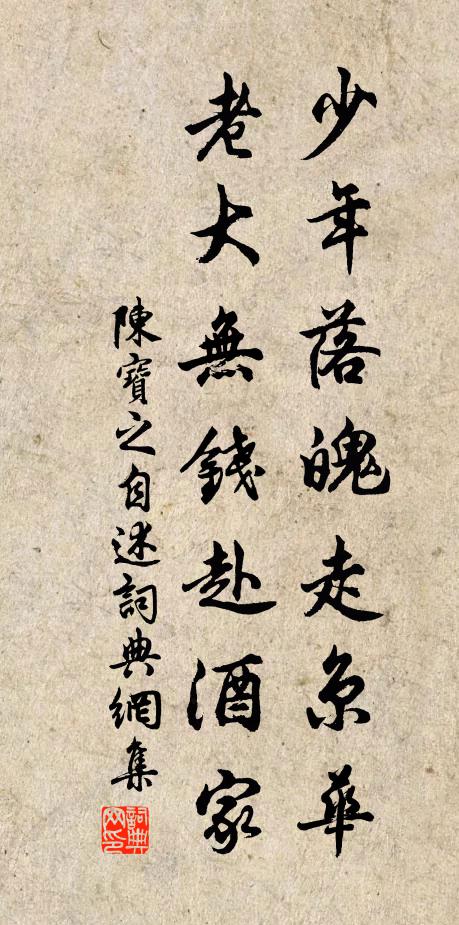 少年落魄走京華
老大無錢赴酒家
陳寶之自述詞典網集
詞典网印